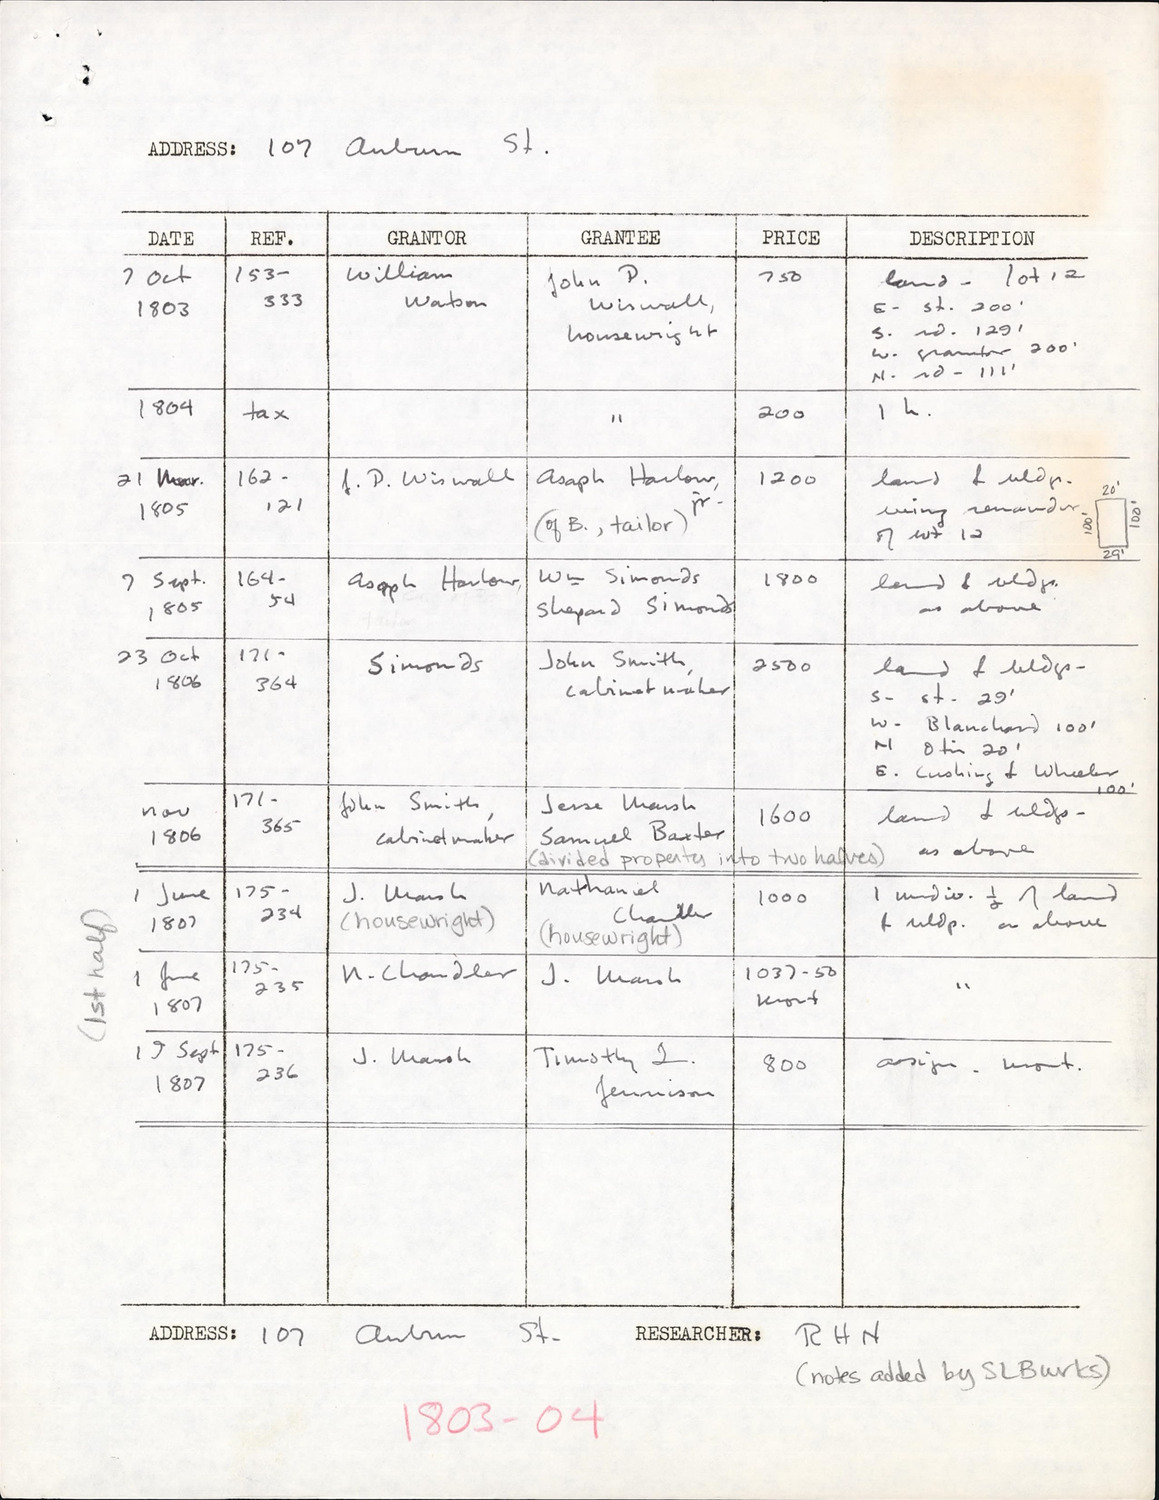 ADDRESS: 107 Auburn St.
DATE REF. GRANTOR GRANTEE PRICE DESCRIPTION
7 Oct 153- William John P. 750 land - lot 12
1803 333 Watson Wiswall, E- st. 200'
housewright S. rd. 129'
W. grantor 200'
N. rd - 111'
1804 tax " 200 1 h.
21 Mar. 162- J. P. Wiswall Asaph Harlow, 1200 land & bldgs.
1805 121 jr. being remainder
(of B., tailor) of lot 12
20'
100'
100'
29'
7 Sept. 164- Asaph Harlow, Wm Simonds 1800 land & bldgs.
1805 54 Shepard Simonds as above
23 Oct 171- Simonds John Smith, 2500 land & bldgs-
1806 364 cabinetmaker S- st. 29'
W- Blanchard 100'
N 20'
E. Cushing & Wheeler
100'
Nov 171- John Smith, Jesse Marsh 1600 land & bldgs-
1806 365 cabinetmaker Samuel Baxter as above
(divided property into two halves)
1 June 175- J. Marsh Nathaniel 1000 1 undiv. ½ of land
1807 234 (housewright) Chandler & bldgs. as above
(housewright)
(1st half)
1 June 175- N. Chandler J. Marsh 1037-50 "
1807 235 mort
19 Sept 175- J. Marsh Timothy L. 800 assign. mort.
1807 236 Jennison
ADDRESS: 107 Auburn St. RESEARCHER: RHN
(notes added by SLBurks)
1803-04